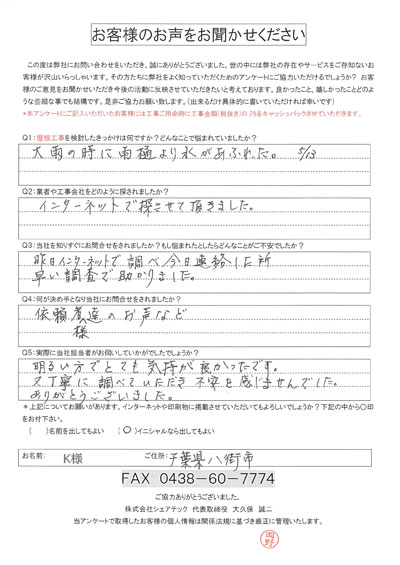 お客様のお声をお聞かせください
この度は弊社にお問い合わせをいただき、誠にありがとうございました。世の中には弊社の存在やサービスをご存知ないお
客様が沢山いらっしゃいます。その方たちに弊社をよく知っていただくためのアンケートにご協力いただけるでしょうか？ お客
様のご意見をお聞かせいただき今後の活動に反映させていただきたいと考えております。良かったこと、嬉しかったことどのよ
うな些細な事でも結構です。是非ご協力お願い致します。（出来るだけ具体的に書いていただければ幸いです）
*本アンケートにご記入いただいたお客様には工事ご用命時に工事金額(税抜き)の 2%をキャッシュバックさせていただきます。
Q1:屋根工事を検討したきっかけは何ですか？どんなことで悩まれていましたか？
大雨の時に雨樋より水があふれた。 5/13
Q2:業者や工事会社をどのように探されましたか？
インターネットで探させて頂きました。
Q3:当社を知りすぐにお問合せをされましたか？もし悩まれたとしたらどんなことがご不安でしたか？
昨日インターネットで調べ今日連絡した所
早い調査で助かりました。
Q4:何が決め手となり当社にお問合せをされましたか？
依頼者達のお声など
様
Q5:実際に当社担当者がお伺いしていかがでしたでしょうか？
明るい方でとても気持が良かったです。
又丁寧に調べていただき不安を感じませんでした。
ありがとうございました。
*上記についてお願いがあります。インターネットや印刷物に掲載させていただいてもよろしいでしょうか？下記の中から〇印
をお付下さい。
( )名前を出してもよい (〇)イニシャルなら出してもよい
お名前: K様 ご住所: 千葉県八街市
FAX 0438-60-7774
ご協力ありがとうございました。
株式会社シェアテック 代表取締役 大久保 誠二
当アンケートで取得したお客様の個人情報は関係法規に基づき厳正に管理いたします。
岡野